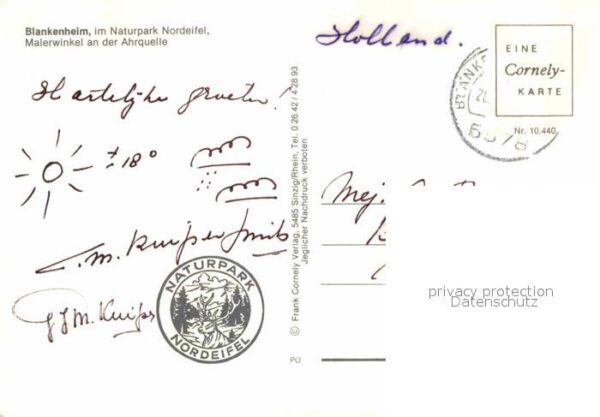 Blankenheim, im Naturpark Nordeifel,
Malerwinkel an der Ahrquelle
Hartelijke groeten!
± 18°
L.M. Kuijper Smits
G J M. Kuijper
NATURPARK
NORDEIFEL
© Frank Cornely Verlag, 5485 Sinzig/Rhein, Tel. 0 26 42 / 4 28 93
Jeglicher Nachdruck verboten
PO
Holland.
EINE
Cornely-
KARTE
Nr. 10.440
Mej.
privacy protection
Datenschutz